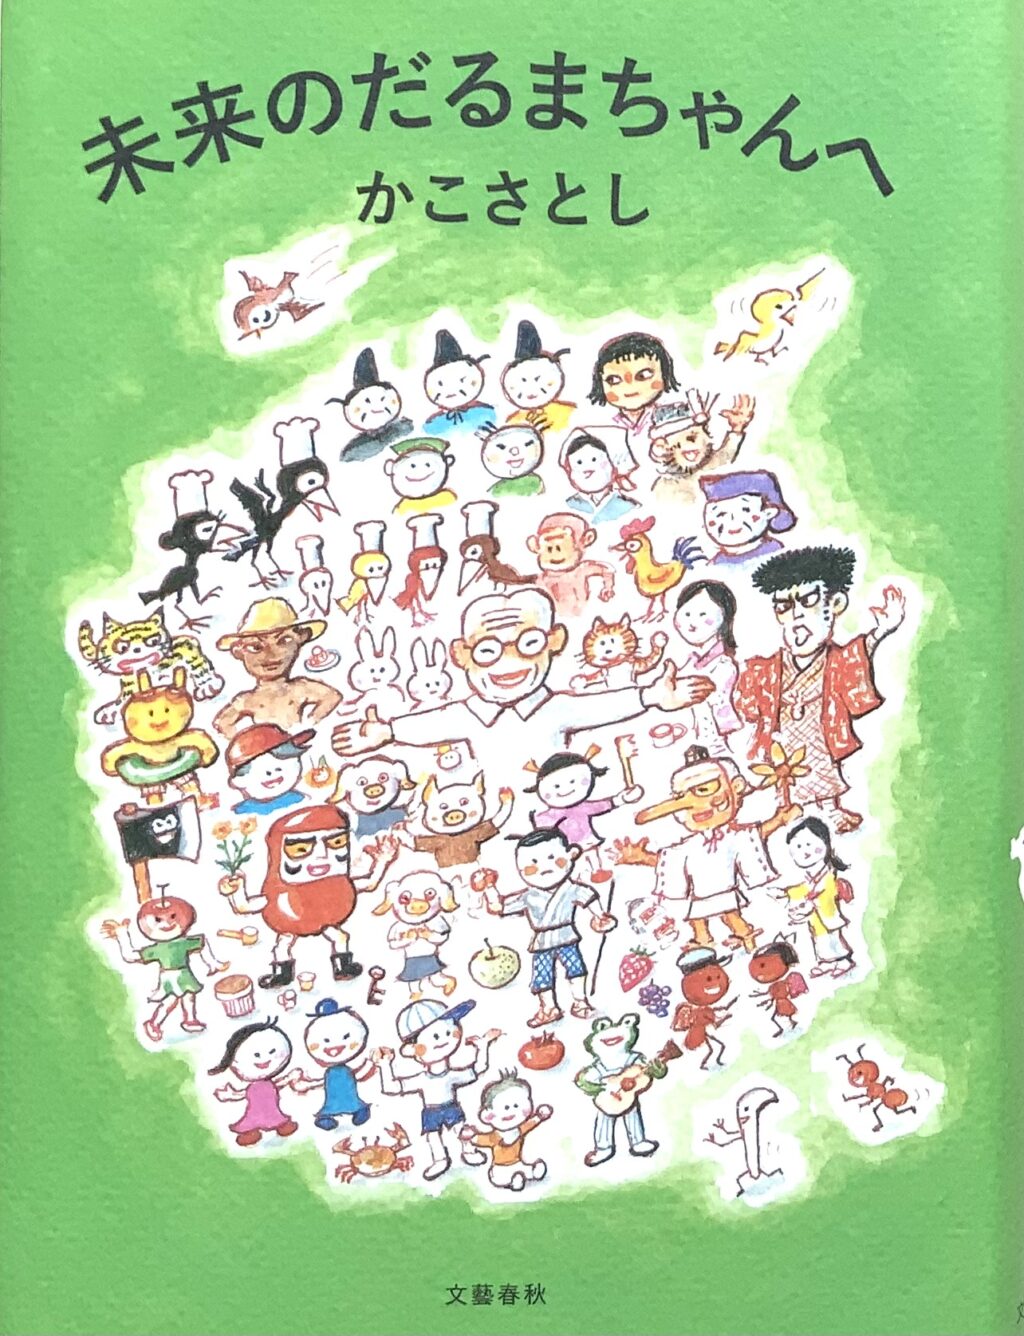 未来のだるまちゃんへ
かこさとし
文藝春秋